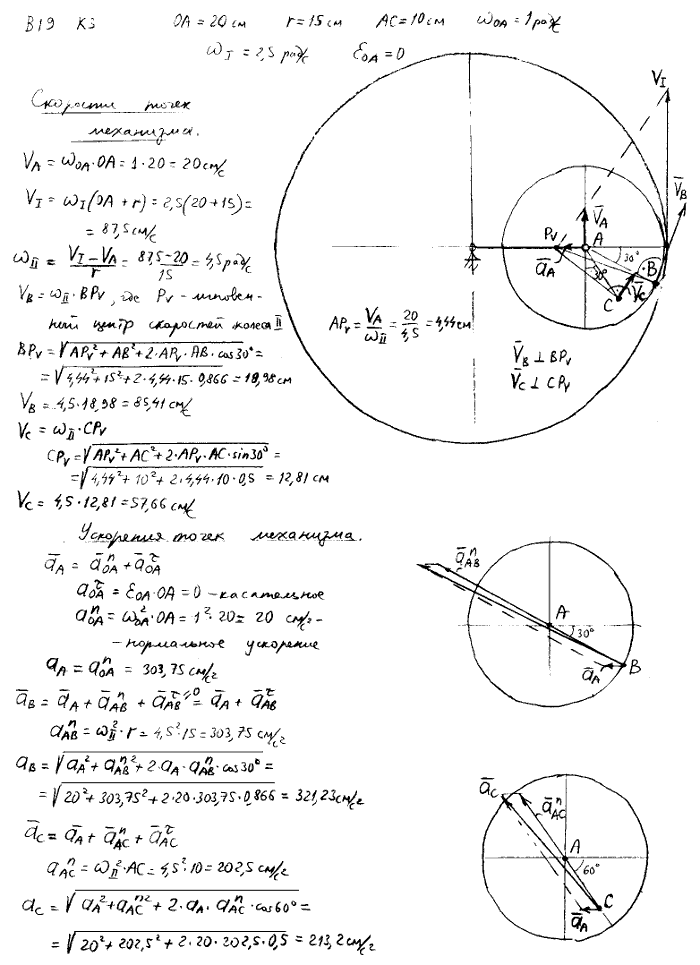 В19 К3 OA = 20 см r = 15 см AC = 10 см ω_OA = 1 рад/с
ω_I = 2,5 рад/с ε_OA = 0
Скорости точек
механизма.
V_A = ω_OA·OA = 1·20 = 20 см/с
V_I = ω_I(OA + r) = 2,5(20+15) =
= 87,5 см/с
ω_II = (V_I - V_A)/r = (87,5-20)/15 = 4,5 рад/с
V_B = ω_II·BP_V, где P_V - мгновен-
ный центр скоростей колеса II
BP_V = √(AP_V² + AB² + 2·AP_V·AB·cos30°) =
= √(4,44² + 15² + 2·4,44·15·0,866) = 18,98 см
V_B = 4,5·18,98 = 85,41 см/с
V_C = ω_II·CP_V
CP_V = √(AP_V² + AC² + 2·AP_V·AC·sin30°) =
= √(4,44² + 10² + 2·4,44·10·0,5) = 12,81 см
V_C = 4,5·12,81 = 57,66 см/с
V_I
V̄_B
V̄_A
P_V
A
ā_A
30°
30°
B
C
V̄_C
AP_V = V_A/ω_II = 20/4,5 = 4,44 см
V̄_B ⊥ BP_V
V̄_C ⊥ CP_V
Ускорения точек механизма.
ā_A = ā_OA^n + ā_OA^τ
a_OA^τ = ε_OA·OA = 0 - касательное
a_OA^n = ω_OA²·OA = 1²·20 = 20 см/с² -
- нормальное ускорение
a_A = a_OA^n = 303,75 см/с²
ā_B = ā_A + ā_AB^n + ā_AB^τ⁼⁰ = ā_A + ā_AB^τ
a_AB^n = ω_II²·r = 4,5²·15 = 303,75 см/с²
a_B = √(a_A² + a_AB^n² + 2·a_A·a_AB^n·cos30°) =
= √(20² + 303,75² + 2·20·303,75·0,866) = 321,23 см/с²
ā_C = ā_A + ā_AC^n + ā_AC^τ
a_AC^n = ω_II²·AC = 4,5²·10 = 202,5 см/с²
a_C = √(a_A² + a_AC^n² + 2·a_A·a_AC^n·cos60° =
= √(20² + 202,5² + 2·20·202,5·0,5) = 213,2 см/с²
ā_AB^n
A
30°
B
ā_A
ā_C
ā_AC^n
A
60°
C
ā_A